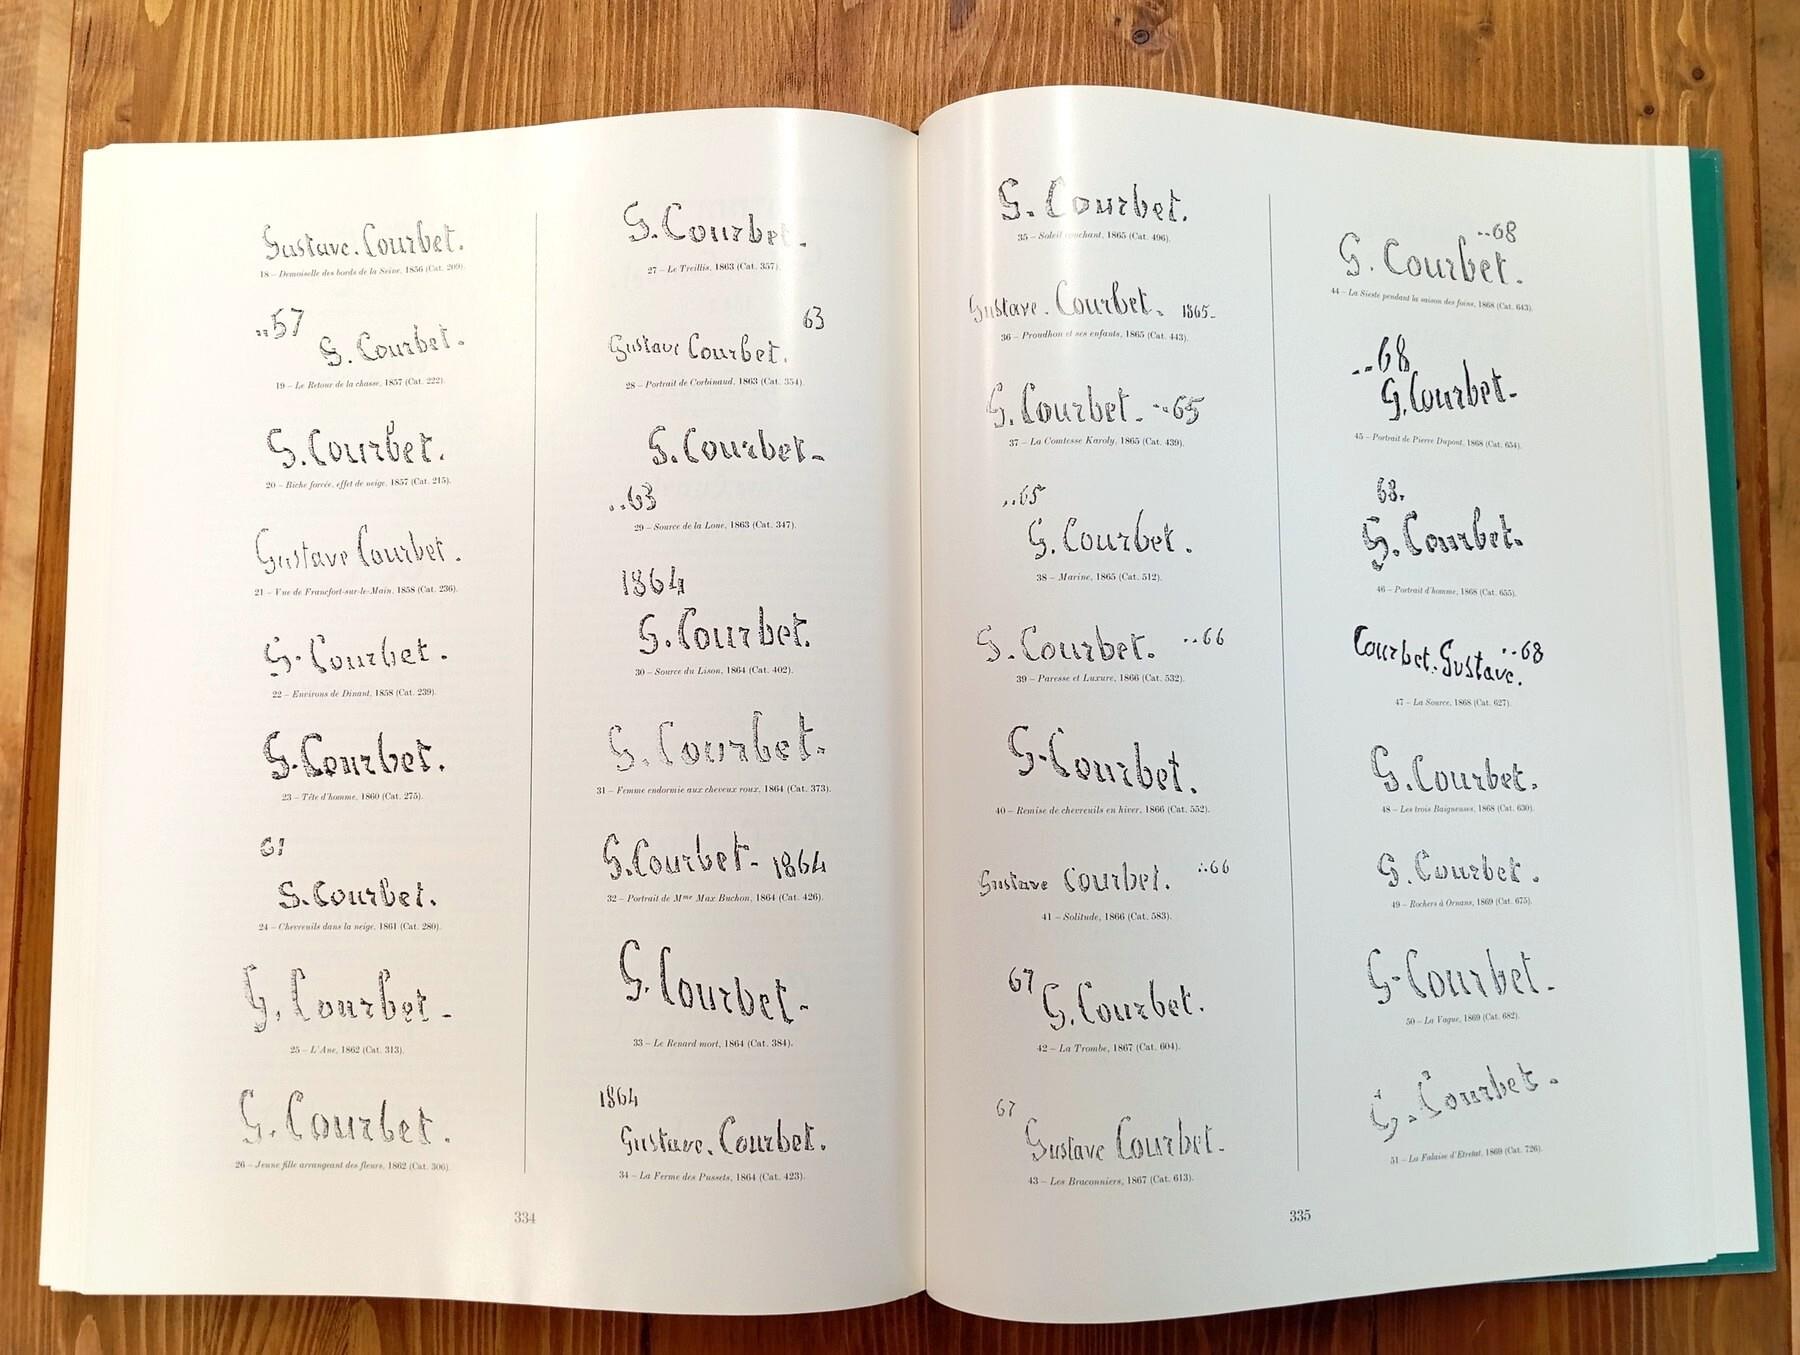 Gustave. Courbet.
18 – Demoiselle des bords de la Seine, 1856 (Cat. 209).
..57
G. Courbet.
19 – Le Retour de la chasse, 1857 (Cat. 222).
G. Courbet.
20 – Biche forcée, effet de neige, 1857 (Cat. 215).
Gustave Courbet.
21 – Vue de Francfort-sur-le-Main, 1858 (Cat. 236).
G. Courbet.
22 – Environs de Dinant, 1858 (Cat. 239).
G. Courbet.
23 – Tête d'homme, 1860 (Cat. 275).
61
G. Courbet.
24 – Chevreuils dans la neige, 1861 (Cat. 280).
G. Courbet-
25 – L'Ane, 1862 (Cat. 313).
G. Courbet.
26 – Jeune fille arrangeant des fleurs, 1862 (Cat. 306).
G. Courbet.
27 – Le Treillis, 1863 (Cat. 357).
63
Gustave Courbet.
28 – Portrait de Corbinaud, 1863 (Cat. 354).
G. Courbet-
..63
29 – Source de la Loue, 1863 (Cat. 347).
1864
G. Courbet.
30 – Source du Lison, 1864 (Cat. 402).
G. Courbet.
31 – Femme endormie aux cheveux roux, 1864 (Cat. 373).
G. Courbet- 1864
32 – Portrait de Mme Max Buchon, 1864 (Cat. 426).
G. Courbet-
33 – Le Renard mort, 1864 (Cat. 384).
1864
Gustave. Courbet.
34 – La Ferme des Pussets, 1864 (Cat. 423).
334
G. Courbet.
35 – Soleil couchant, 1865 (Cat. 496).
Gustave. Courbet. 1865-
36 – Proudhon et ses enfants, 1865 (Cat. 443).
G. Courbet- ..65
37 – La Comtesse Karoly, 1865 (Cat. 439).
..65
G. Courbet.
38 – Marine, 1865 (Cat. 512).
G. Courbet. ..66
39 – Paresse et Luxure, 1866 (Cat. 532).
G-Courbet.
40 – Remise de chevreuils en hiver, 1866 (Cat. 552).
Gustave Courbet. ..66
41 – Solitude, 1866 (Cat. 583).
67
G. Courbet.
42 – La Trombe, 1867 (Cat. 604).
67
Gustave Courbet-
43 – Les Braconniers, 1867 (Cat. 613).
..68
G. Courbet.
44 – La Sieste pendant la saison des foins, 1868 (Cat. 643).
..68
G. Courbet-
45 – Portrait de Pierre Dupont, 1868 (Cat. 654).
68.
G. Courbet.
46 – Portrait d'homme, 1868 (Cat. 655).
Courbet. Gustave. ..68
47 – La Source, 1868 (Cat. 627).
G. Courbet.
48 – Les trois Baigneuses, 1868 (Cat. 630).
G. Courbet.
49 – Rochers à Ornans, 1869 (Cat. 675).
G-Courbet-
50 – La Vague, 1869 (Cat. 682).
G. Courbet.
51 – La Falaise d'Etretat, 1869 (Cat. 726).
335